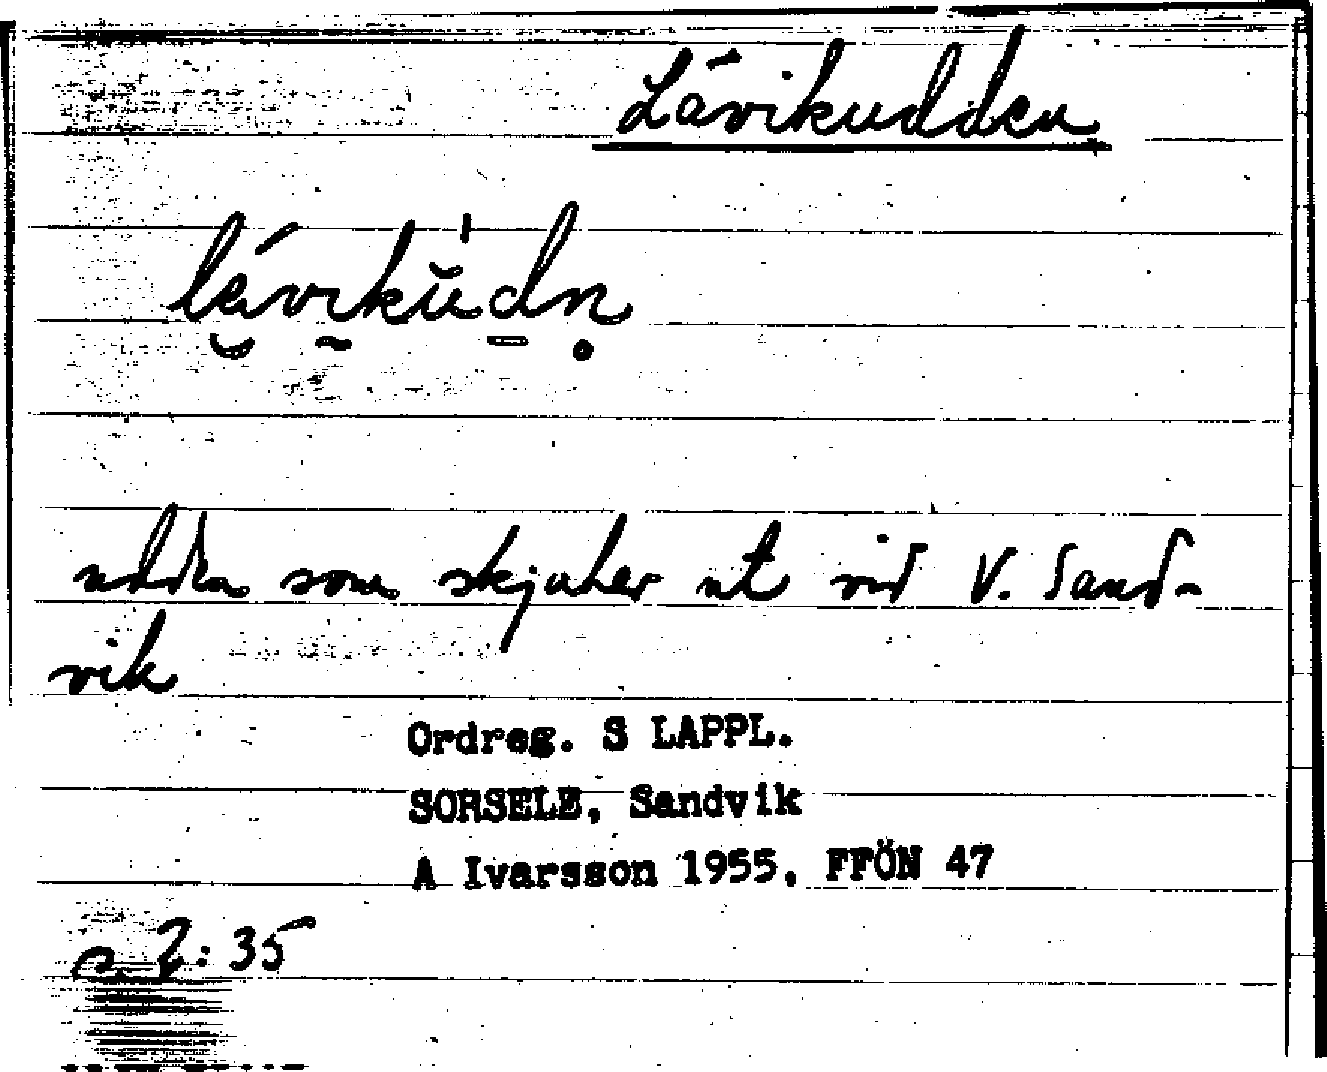 Låvikudden
udden som skjuter ut vid V. Sand-
vik
Ordreg. S LAPPL.
SORSELE, Sandvik
A Ivarsson 1955, FFÖN 47
s. 2:35